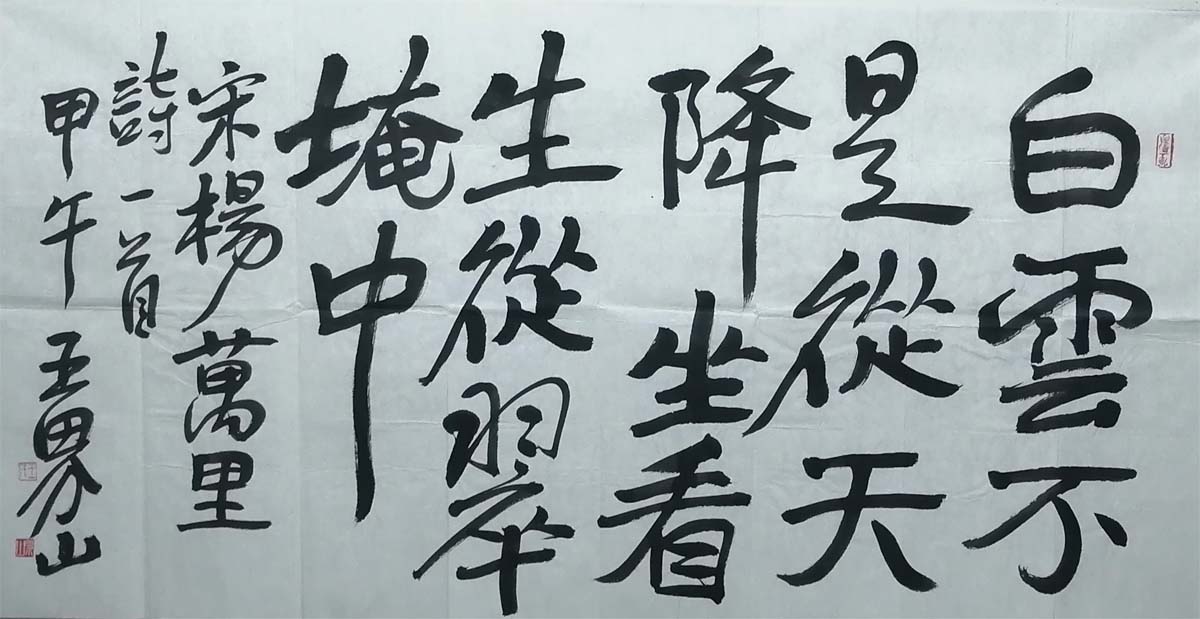 白雲不
是從天
降坐看
生從翠
埯中
宋楊萬里
詩一首
甲午 王山